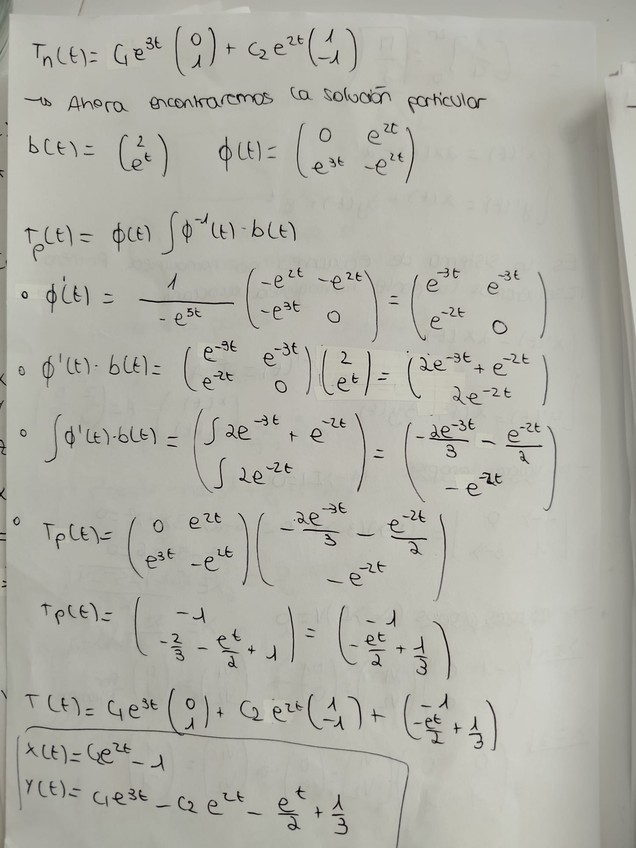 Tn(t) = C1e^3t (0 1) + C2 e^2t (1 -1)
→ Ahora encontraremos la solución particular
b(t) = (2 e^t) ϕ(t) = (0 e^2t e^3t -e^2t)
Tp(t) = ϕ(t) ∫ϕ^-1(t)·b(t)
• ϕ'(t) = 1/-e^5t (-e^2t -e^2t -e^3t 0) = (e^-3t e^-3t e^-2t 0)
• ϕ'(t)·b(t) = (e^-3t e^-3t e^-2t 0)(2 e^t) = (2e^-3t + e^-2t 2e^-2t)
• ∫ϕ'(t)·b(t) = (∫2e^-3t + e^-2t ∫2e^-2t) = (-2e^-3t/3 - e^-2t/2 -e^-2t)
• Tp(t) = (0 e^2t e^3t -e^2t)(-2e^-3t/3 - e^-2t/2 -e^-2t)
Tp(t) = (-1 -2/3 - e^t/2 + 1) = (-1 -e^t/2 + 1/3)
T(t) = C1e^3t (0 1) + C2 e^2t (1 -1) + (-1 -e^t/2 + 1/3)
x(t) = C2e^2t - 1
y(t) = C1e^3t - C2 e^2t - e^t/2 + 1/3